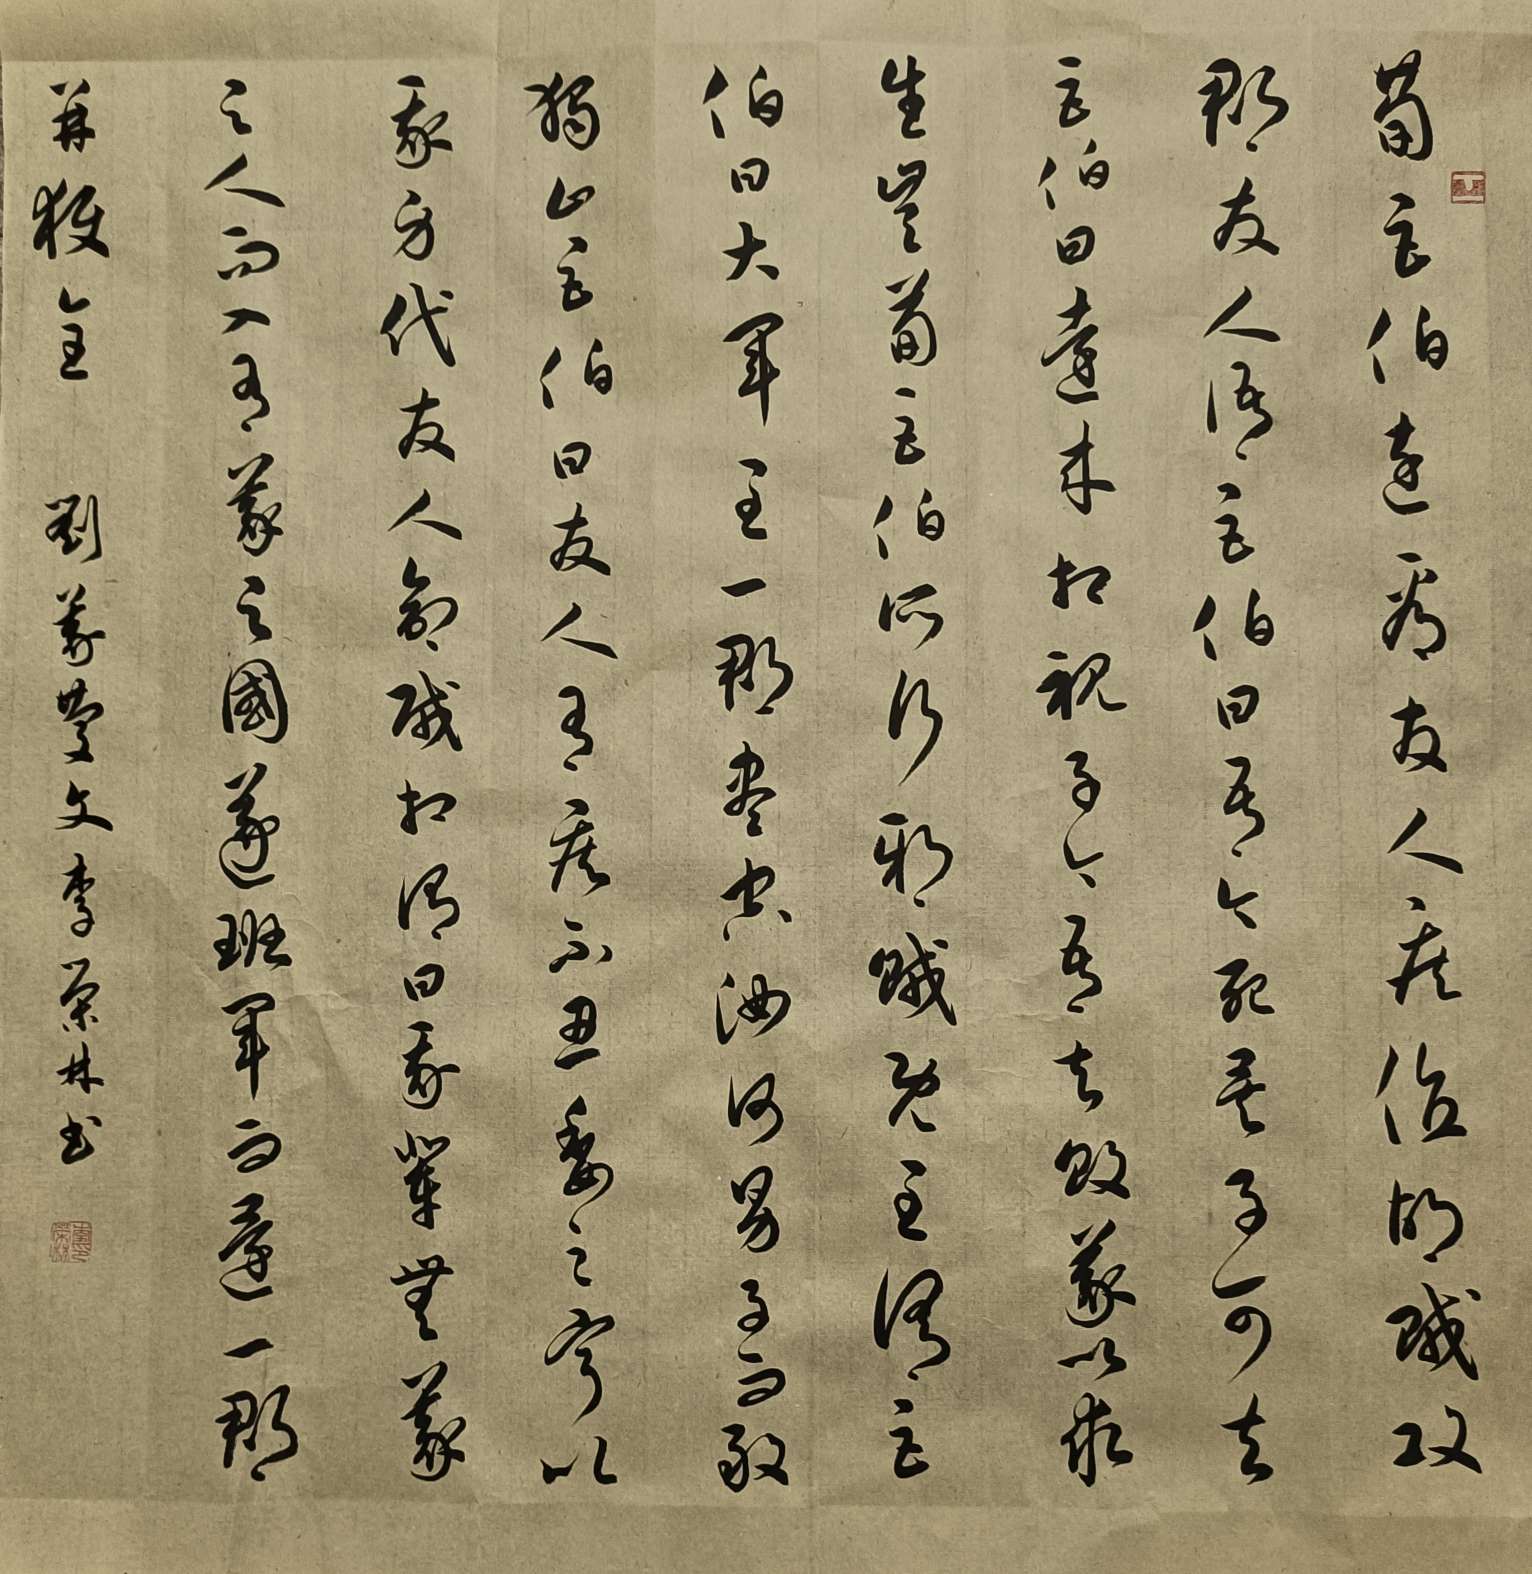 荀巨伯遠看友人疾值胡賊攻
郡友人語巨伯曰吾今死矣子可去
巨伯曰遠来相視子令吾去敗義以求
生豈荀巨伯所行邪賊既至謂巨
伯曰大軍至一郡盡空汝何男子而敢
獨止巨伯曰友人有疾不忍委之寧以
我身代友人命賊相謂曰我輩無義
之人而入有義之國遂班軍而還一郡
並獲全 劉義慶文李榮林书